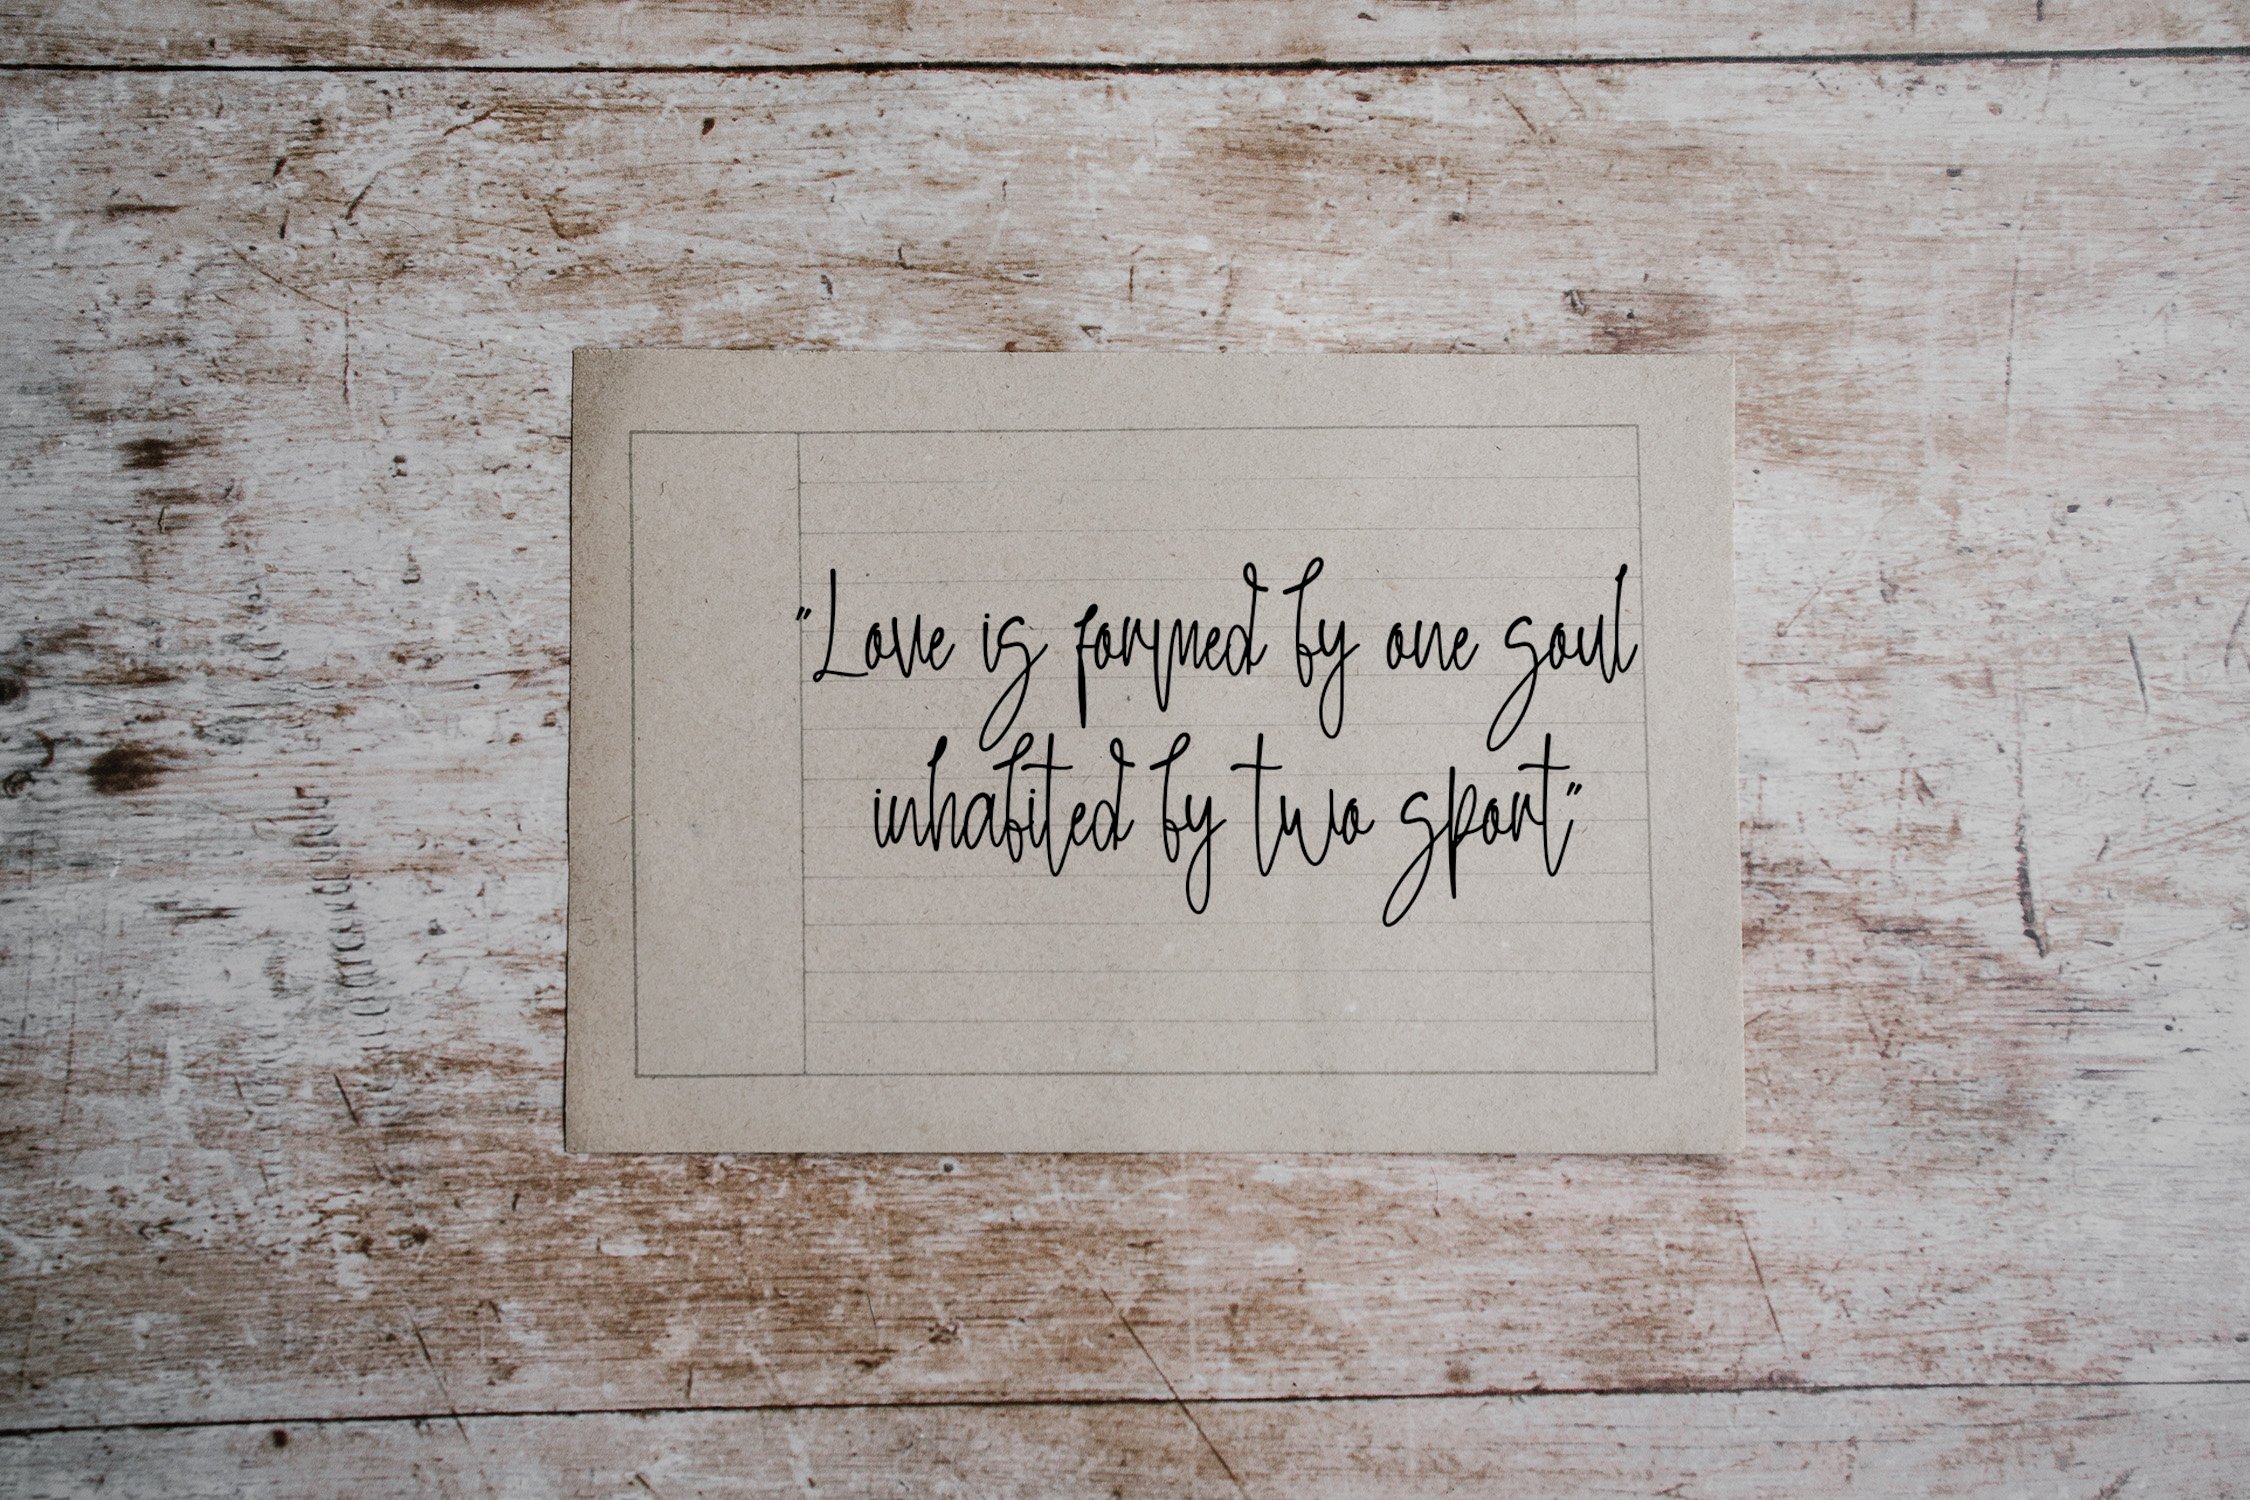 "Love is formed by one soul
inhabited by two sport"